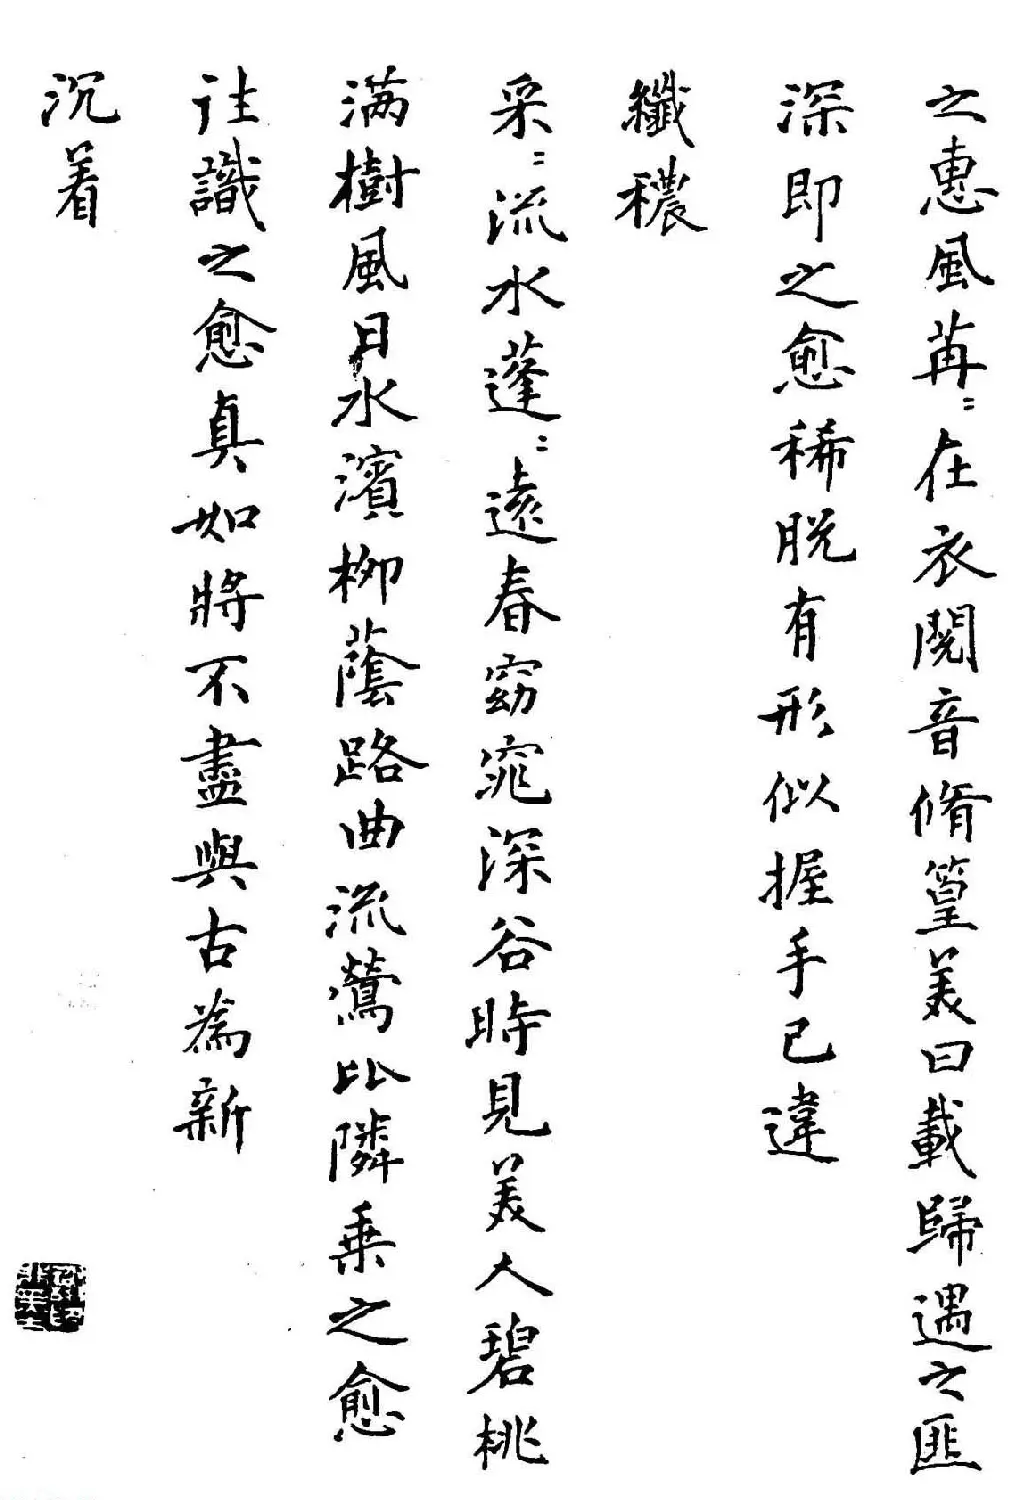 之惠風苒〻在衣閱音脩篁美曰載歸遇之匪
深即之愈稀脱有形似握手已違
纖穠
采〻流水蓬〻遠春窈窕深谷時見美人碧桃
满樹風日水濱柳蔭路曲流鶯比隣乗之愈
往識之愈真如將不盡與古為新
沉着